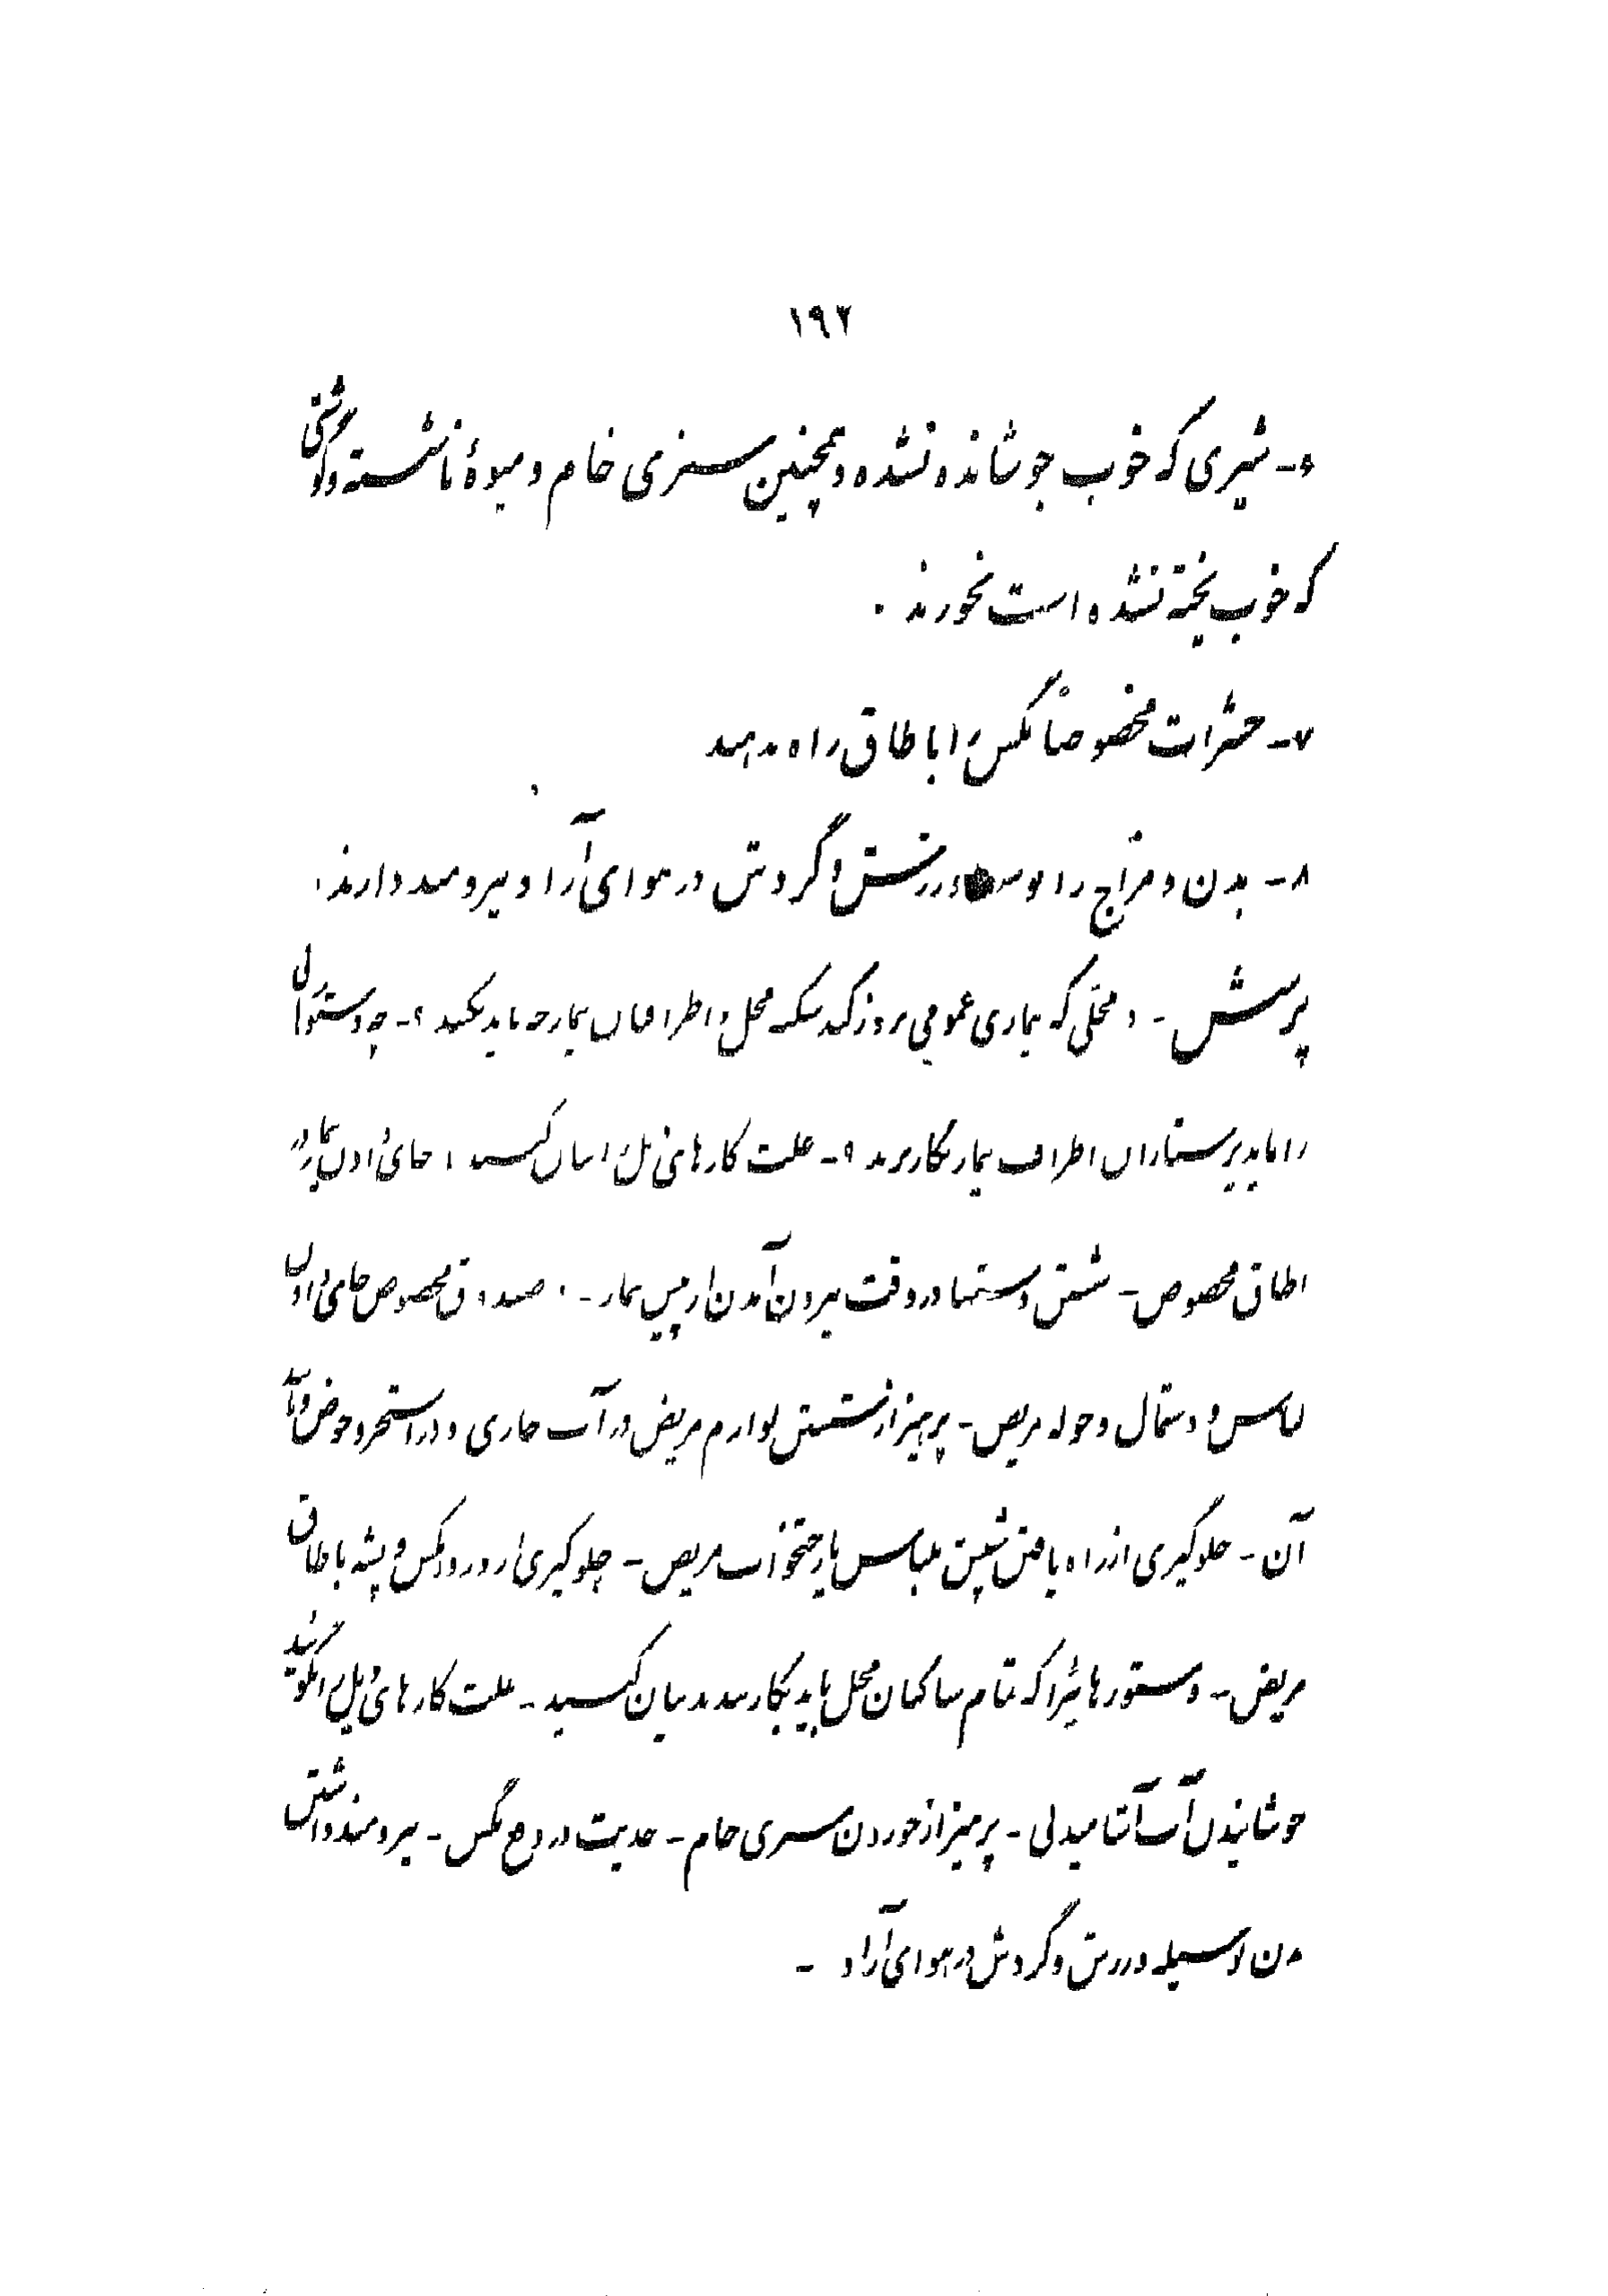 ۱۹۲
۶- شیری که خوب جوشانده نشده و همچنین سبزی خام و میوهٔ ناشسته و گوشتی
که خوب پخته نشده است نخورند .
۷- حشرات مخصوصاً مگس را باطاق راه ندهند
۸- بدن و مزاج را بوسیله ورزش و گردش در هوای آزاد نیرومند دارند .
پرسش - در محلی که بیماری عمومی بروز کند سکنه محل و اطرافیان بیمار چه باید بکنند ؟ - چه دستورهائی
را باید پرستاران اطراف بیمار بکار برند ؟ - علت کارهای ذیل را بیان کنید : جای دادن بیمار در
اطاق مخصوص - شستن دستها در وقت بیرون آمدن از پیش بیمار - صندوق مخصوص جای دادن
لباس و دستمال و حوله مریض - پرهیز از شستن لوازم مریض در آب جاری و در استخر و حوض و مانند
آن - جلوگیری از راه یافتن شپش بلباس یا رختخواب مریض - جلوگیری از ورود مگس و پشه باطاق
مریض - دستورهائی را که تمام ساکنان محل باید بکار بندند بیان کنید - علت کارهای ذیل را بگوئید
جوشانیدن آب آشامیدنی - پرهیز از خوردن سبزی خام - مگس - نیرومند داشتن
بدن بوسیله ورزش و گردش در هوای آزاد -